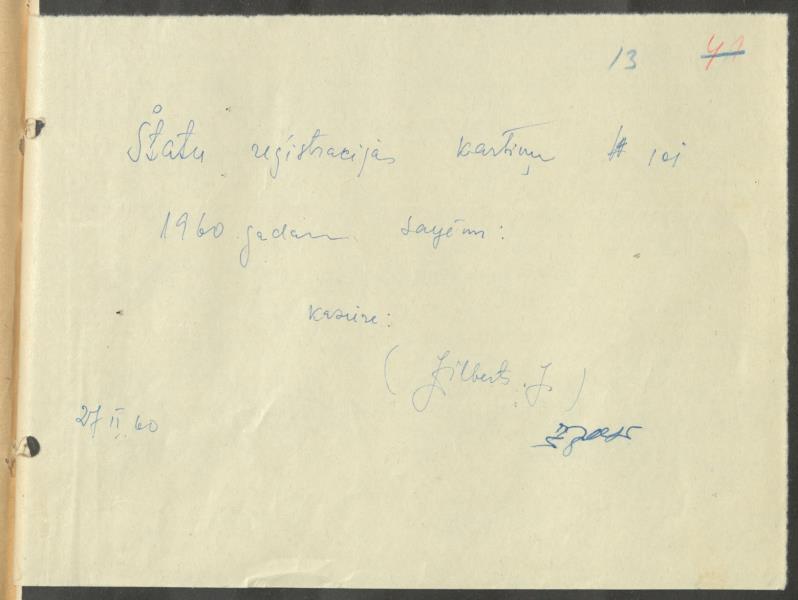 13 41
Štatu reģistrācijas kartiņu # 101
1960 gadam saņēmu:
kasiere:
( Gilberts J. )
27 II 60